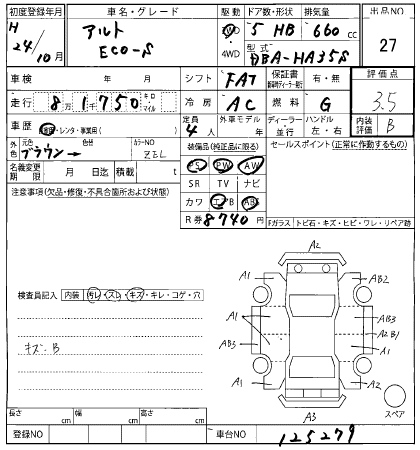 初度登録年月 車名・グレード 駆動 ドア数・形状 排気量 出品NO
H 24/10月 アルト ECO-S 2WD 4WD 5 HB 660 cc 27
型式 DBA-HA35S
車検 年 月 シフト FAT 保証書 有・無 評価点
走行 8万1750 キロ・マイル 冷房 AC 燃料 G 3.5
車歴 自家用・レンタ・事業用( ) 定員 4人 外車モデル 年 ディーラー・並行 ハンドル 左・右 内装評価 B
外色 元色 ブラウン 色替 カラーNO ZBL 装備品(純正品に限る) セールスポイント(正常に作動するもの)
名義変更期限 月 日迄 積載 t PS PW AW
注意事項(欠品・修復・不具合箇所および状態) SR TV ナビ
カワ エアB ABS
R券 8740円 Fガラス トビ石・キズ・ヒビ・ワレ・リペア跡
A2
A1 AB2
検査員記入 内装 汚レ・スレ・キズ・キレ・コゲ・穴
A1 AB3
A2 B1
キズ・B AB3 A1
A1 A2
スペア
A3
長さ cm 幅 cm 高さ cm
登録NO 車台NO 125279